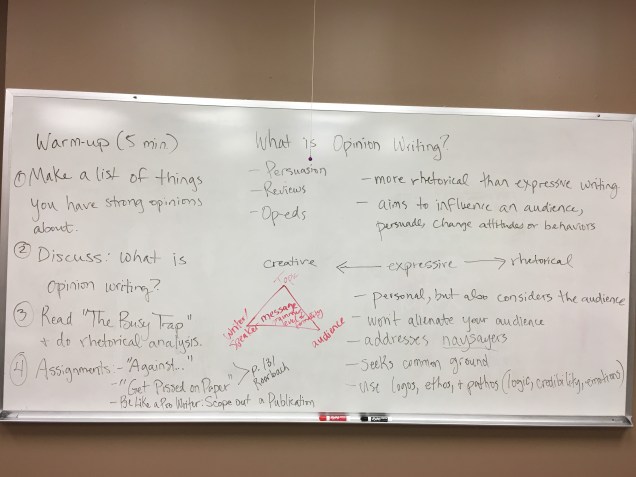 Warm-up (5 min)
① Make a list of things
you have strong opinions
about.
② Discuss: What is
opinion writing?
③ Read "The Busy Trap"
+ do rhetorical analysis.
④ Assignments: - "Against..."
- "Get Pissed on Paper"
> p. 131
Roorbach
- Be Like a Pro Writer: Scope out a Publication
What is Opinion Writing?
- Persuasion
- Reviews
- Op-eds
- more rhetorical than expressive writing
- aims to influence an audience,
persuade, change attitudes or behaviors
creative ← expressive → rhetorical
Topic
writer/
speaker
message
audience
- personal, but also considers the audience
- won't alienate your audience
- addresses naysayers
- seeks common ground
- use logos, ethos, + pathos (logic, credibility, emotions)